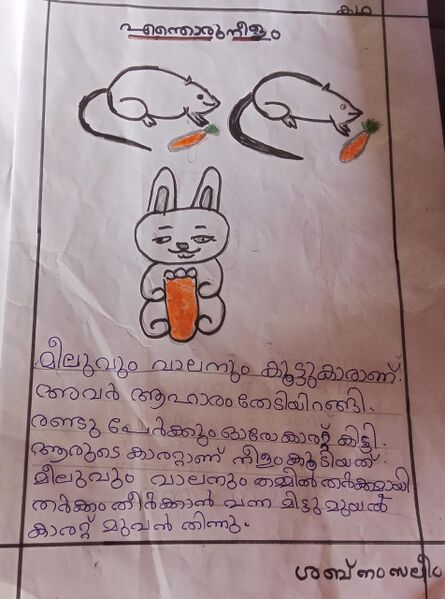 കഥ
എന്തൊരു നീളം
മീലുവും വാലനും കൂട്ടുകാരാണ്.
അവർ ആഹാരം തേടിയിറങ്ങി.
രണ്ടു പേർക്കും ഓരോ കാരറ്റ് കിട്ടി.
ആരുടെ കാരറ്റാണ് നീളം കൂടിയത്.
മീലുവും വാലനും തമ്മിൽ തർക്കമായി
തർക്കം തീർക്കാൻ വന്ന മിട്ടു മുയൽ
കാരറ്റ് മുവൻ തിന്നു.
ശബ്നം സലീം